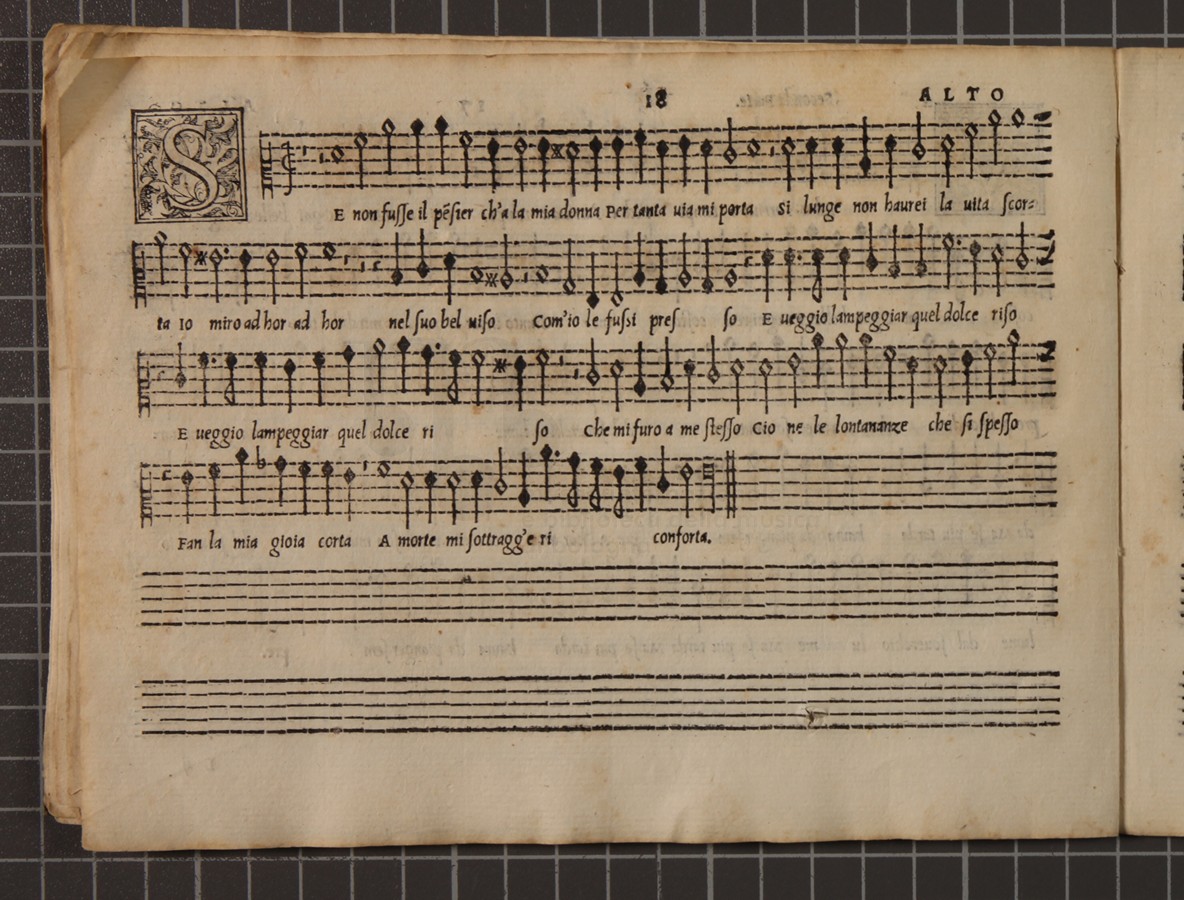 18
ALTO
SE non fusse il pẽsier ch'a la mia donna Per tanta uia mi porta si lunge non haurei la uita scor=
ta Io miro ad hor ad hor nel suo bel uiso Com'io le fussi pres so E ueggio lampeggiar quel dolce riso
E ueggio lampeggiar quel dolce ri so Che mi furo a me stesso Cio ne le lontananze che si spesso
Fan la mia gioia corta A morte mi sottragg'e ri conforta.